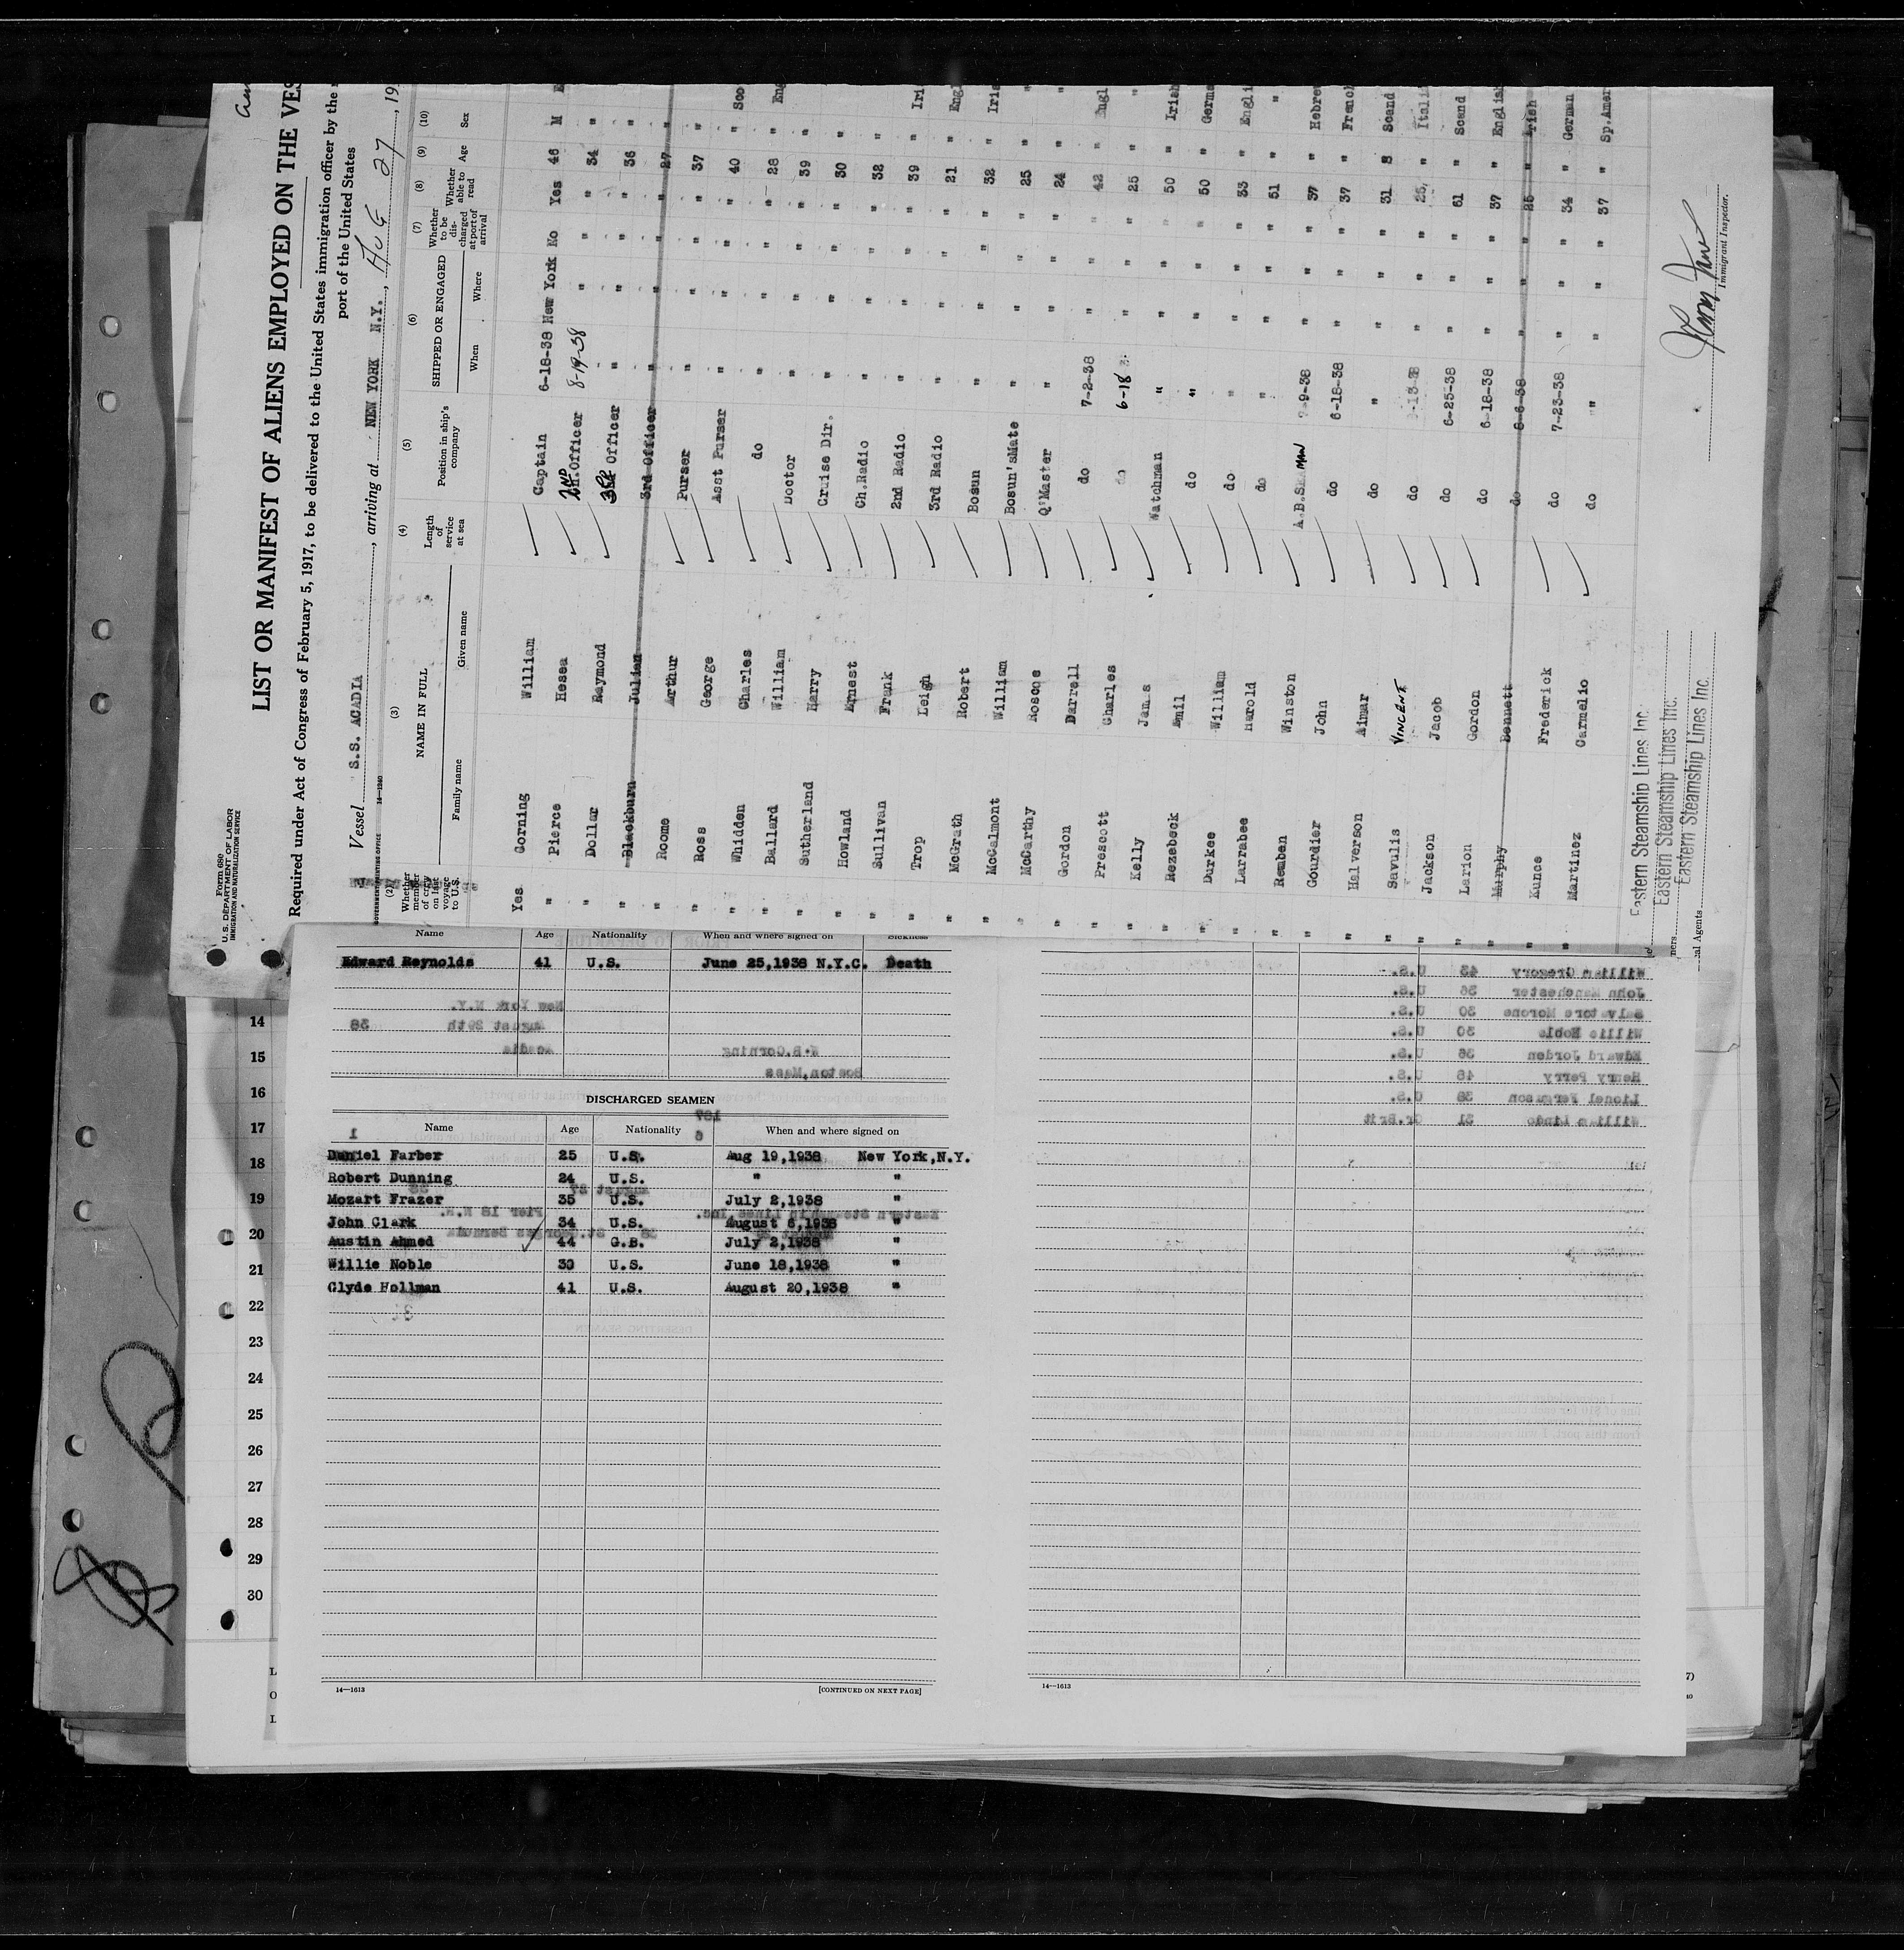 Form 680
U. S. DEPARTMENT OF LABOR
IMMIGRATION AND NATURALIZATION SERVICE
LIST OR MANIFEST OF ALIENS EMPLOYED ON THE VES
Required under Act of Congress of February 5, 1917, to be delivered to the United States immigration officer by the
port of the United States
Vessel S.S. ACADIA, arriving at NEW YORK N.Y., AUG 27, 19
(2) (3) (4) (5) (6) (7) (8) (9) (10)
Whether member of crew on last voyage to U.S. NAME IN FULL Family name Given name Length of service at sea Position in ship's company SHIPPED OR ENGAGED When Where Whether to be discharged at port of arrival Whether able to read Age Sex
Yes Corning William Captain 6-18-38 New York No Yes 46 M E
" Pierce Hesea 2ND Officer 8-19-38 " " " 34 "
" Dollar Raymond 3RD Officer " " " " 36 "
" Blackburn Julian 3rd Officer " " " " 27 "
" Roome Arthur Purser " " " " 37 "
" Ross George Asst Purser " " " " 40 " Sco
" Whidden Charles do " " " " 28 " Eng
" Ballard William Doctor " " " " 39 "
" Sutherland Harry Cruise Dir. " " " " 30 "
" Howland Ernest Ch.Radio " " " " 32 "
" Sullivan Frank 2nd Radio " " " " 39 " Iri
" Trop Leigh 3rd Radio " " " " 21 " Engl
" McGrath Robert Bosun " " " " 32 " Iris
" McCalmont William Bosun'sMate " " " " 25 " "
" McCarthy Roscoe Q'Master " " " " 24 " "
" Gordon Darrell do 7-2-38 " " " 42 " Engl
" Prescott Charles do 6-18 " " " 25 " "
" Kelly James Watchman " " " " 50 " Irish
" Rezebeck Emil do " " " " 50 " Germa
" Durkee William do " " " " 33 " Engli
" Larrabee Harold do " " " " 51 " "
" Remben Winston A.B.SEAMAN 9-38 " " " 37 " Hebre
" Gourdier John do 6-18-38 " " " 37 " French
" Halverson Aimar do " " " " 31 " Scand
" Savulis VINCENT do " " " 25 " Itali
" Jackson Jacob do 6-25-38 " " " 61 " Scand
" Larion Gordon do 6-18-38 " " " 37 " English
" Murphy Bennett do 8-6-38 " " " 25 " Irish
" Kunce Frederick do 7-23-38 " " " 34 " German
" Martinez Carmelio do " " " " 37 " Sp.Amer
Eastern Steamship Lines Inc.
Eastern Steamship Lines Inc.
Eastern Steamship Lines Inc.
Immigrant Inspector.
al Agents
Name Age Nationality When and where signed on Sickness
Edward Reynolds 41 U.S. June 25,1938 N.Y.C. Death
New York N.Y.
August 29th 38
Acadia
Boston,Mass
DISCHARGED SEAMEN
Name Age Nationality When and where signed on
Daniel Farber 25 U.S. Aug 19,1938 New York,N.Y.
Robert Dunning 24 U.S. " "
Mozart Frazer 35 U.S. July 2,1938 "
John Clark 34 U.S. August 6,1938 "
Austin Ahmed 44 G.B. July 2,1938 "
Willie Noble 30 U.S. June 18,1938 "
Clyde Hollman 41 U.S. August 20,1938 "
William Gregory 43 U.S.
John Manchester 36 U.S.
Salvatore Morone 30 U.S.
Willie Noble 30 U.S.
Edward Jorden 36 U.S.
Henry Perry 48 U.S.
Lionel Ferguson 38 U.S.
William Lindo 31 Gr.Brit
14
15
16
17
18
19
20
21
22
23
24
25
26
27
28
29
30
14—1613
[CONTINUED ON NEXT PAGE]
14—1613